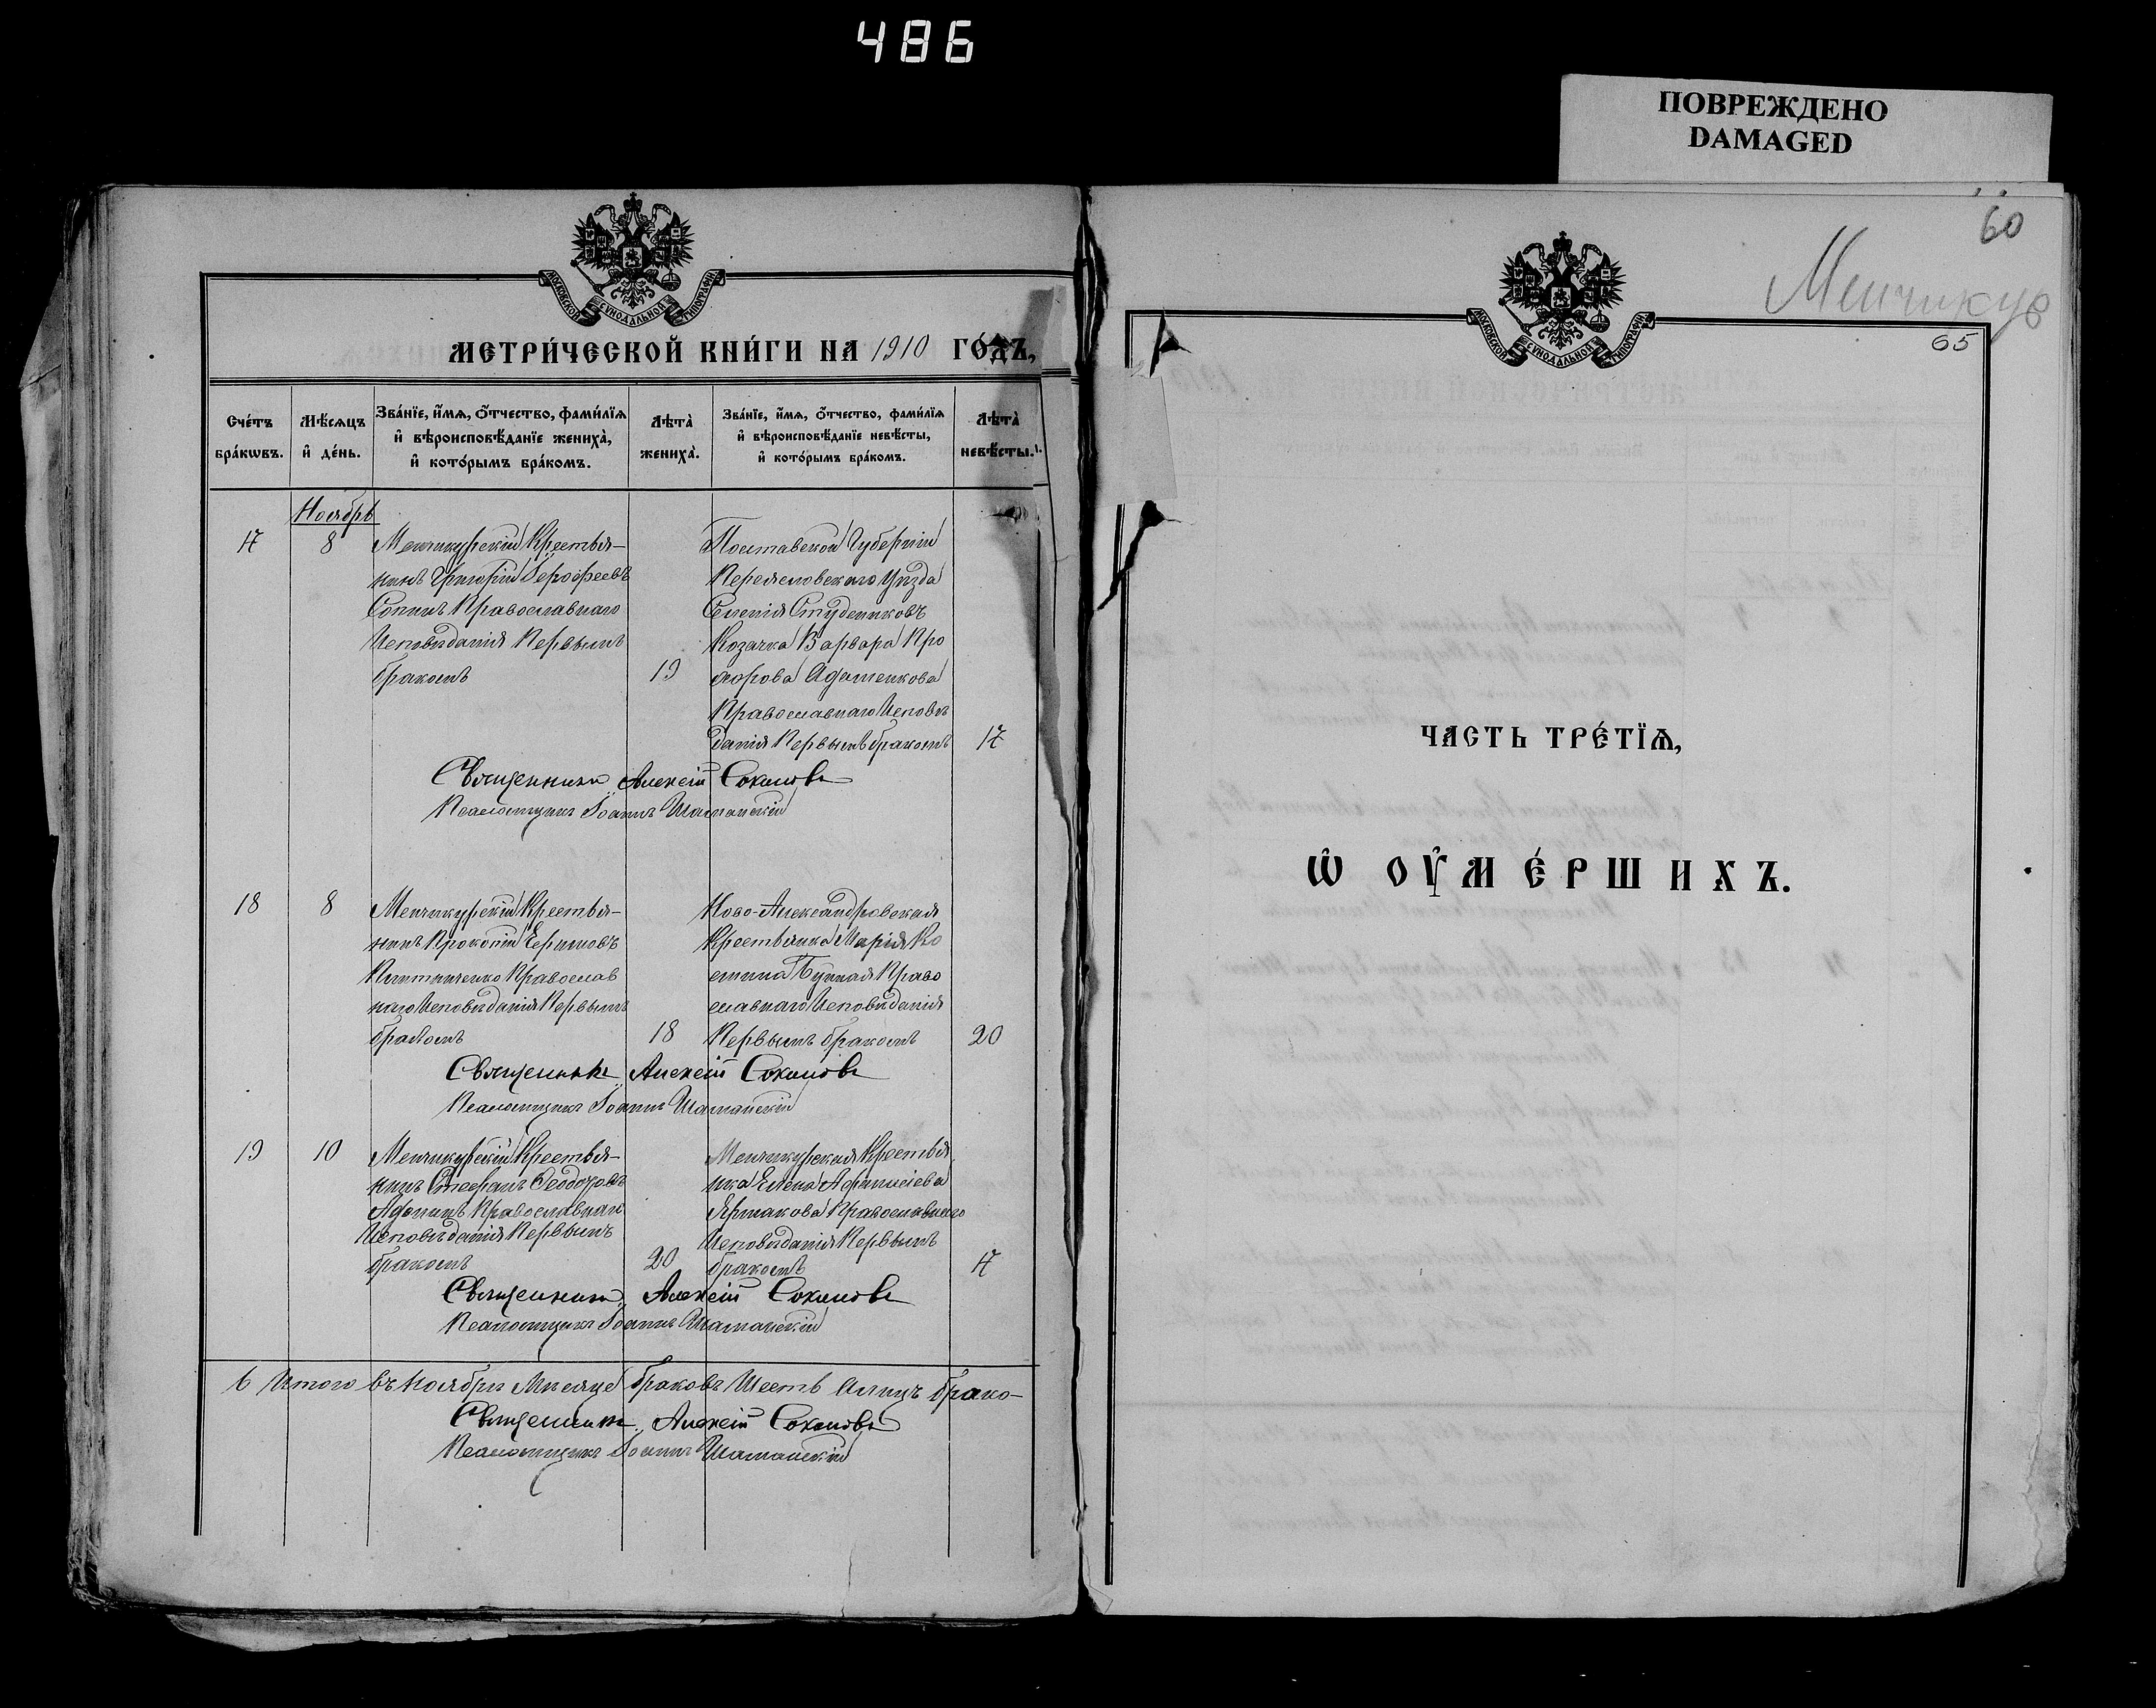 486
ПОВРЕЖДЕНО
DAMAGED
МОСКОВСКОЙ СѴНОДАЛЬНОЙ ТИПОГРАФІИ
МЕТРИ́ЧЕСКОЙ КНИ́ГИ НА 1910 ГО́ДЪ,
Сче́тъ бра́кѡвъ.
Мѣ́сяцъ и҆ де́нь.
Зва́нїе, и҆́мѧ, ѻ҆́тчество, фами́лїѧ и҆ вѣроисповѣ́данїе жениха̀, и҆ кото́рымъ бра́комъ.
Лѣта̀ жениха̀.
Зва́нїе, и҆́мѧ, ѻ҆́тчество, фами́лїѧ и҆ вѣроисповѣ́данїе невѣ́сты, и҆ кото́рымъ бра́комъ.
Лѣта̀ невѣ́сты.
Ноябрь
17
8
Менчикурскій Крестья-
нинъ Григорій Ерофеевъ
Православнаго
Исповѣданія Первымъ
бракомъ
19
Полтавской Губерніи
Переяславскаго Уѣзда
Селенія Студениковъ
Козачка Варвара Про
хорова Адаменкова
Православнаго Исповѣ
данія Первымъ бракомъ
17
Священникъ Алексій Соколовъ
Псаломщикъ Іоаннъ Шаманскій
18
8
Менчикурскій Крестья-
нинъ Прокопій
Православ
наго Исповѣданія Первымъ
бракомъ
18
Ново-Александровская
Крестьянка Марія Ко
Право
славнаго Исповѣданія
Первымъ бракомъ
20
Священникъ Алексій Соколовъ
Псаломщикъ Іоаннъ Шаманскій
19
10
Менчикурскій Крестья-
нинъ Стефанъ Ѳеодоровъ
Афонинъ Православнаго
Исповѣданія Первымъ
бракомъ
20
Менчикурская Крестья
нка Елена Афанасіева
Ярмакова Православнаго
Исповѣданія Первымъ
бракомъ
17
Священникъ Алексій Соколовъ
Псаломщикъ Іоаннъ Шаманскій
6 Итого въ Ноябрѣ Мѣсяцѣ браковъ Шесть брако-
Священникъ Алексій Соколовъ
Псаломщикъ Іоаннъ Шаманскій
60
Менчикур
65
МОСКОВСКОЙ СѴНОДАЛЬНОЙ ТИПОГРАФІИ
ЧАСТЬ ТРЕ́ТЇѦ,
Ѡ҆ ОУ҆МЕ́РШИХЪ.